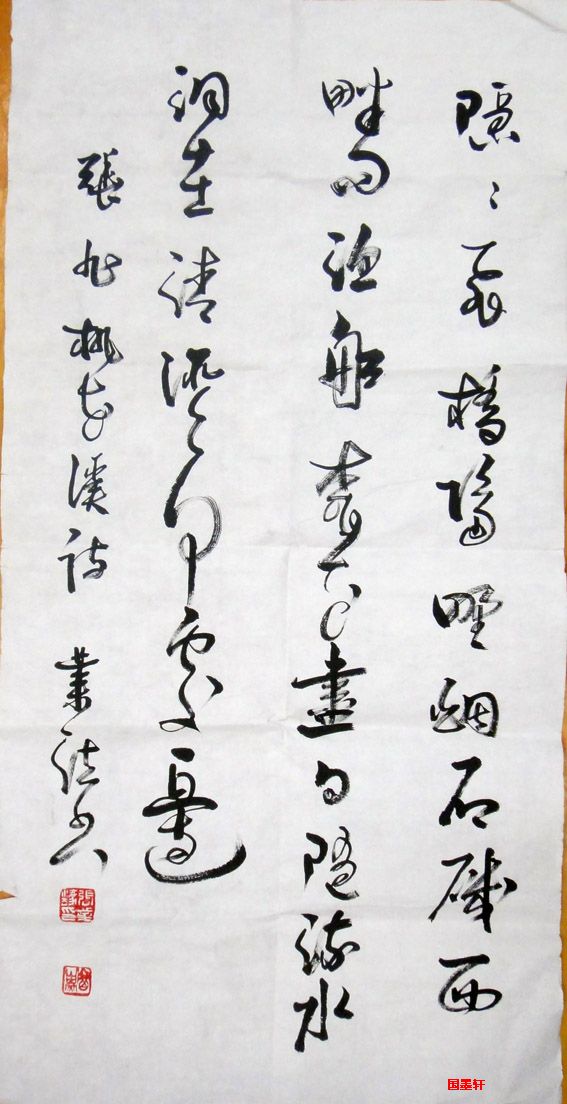 隱々飛橋隔野烟石磯西
畔問漁船桃花盡日隨流水
洞在清溪何處邊
張旭桃花溪詩 業 書
国墨轩